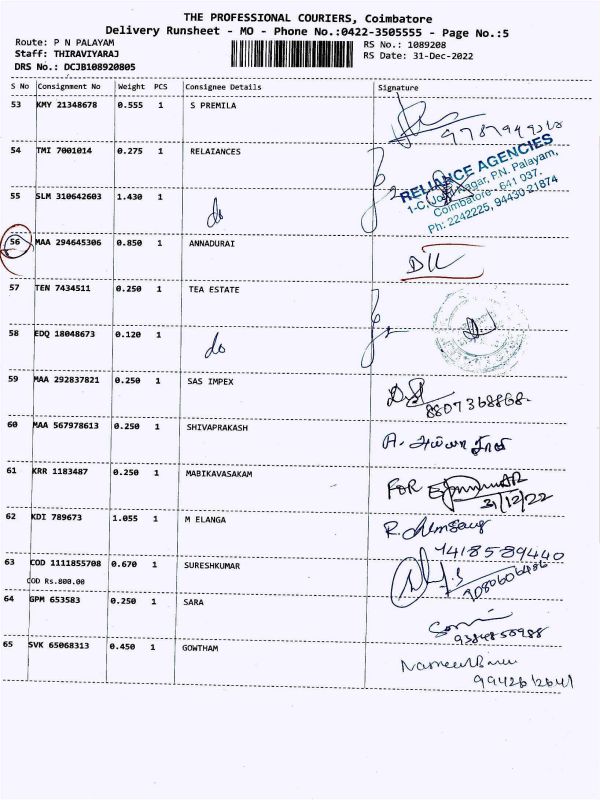 THE PROFESSIONAL COURIERS, Coimbatore
Delivery Runsheet - MO - Phone No.:0422-3505555 - Page No.:5
Route: P N PALAYAM
RS No.: 1089208
Staff: THIRAVIYARAJ
RS Date: 31-Dec-2022
DRS No.: DCJB108920805
S No Consignment No Weight PCS Consignee Details Signature
53 KMY 21348678 0.555 1 S PREMILA
54 TMI 7001014 0.275 1 RELAIANCES
RELIANCE AGENCIES
Nagar, P.N. Palayam,
Coimbatore - 641 037.
Ph: 2242225, 94430 21874
55 SLM 310642603 1.430 1 do
56 MAA 294645306 0.850 1 ANNADURAI
57 TEN 7434511 0.250 1 TEA ESTATE
58 EDQ 18048673 0.120 1 do
59 MAA 292837821 0.250 1 SAS IMPEX
8807368868
60 MAA 567978613 0.250 1 SHIVAPRAKASH
61 KRR 1183487 0.250 1 MABIKAVASAKAM
FOR
31/12/22
62 KDI 789673 1.055 1 M ELANGA
7418589440
63 COD 1111855708 0.670 1 SURESHKUMAR
COD Rs.800.00
64 GPM 653583 0.250 1 SARA
65 SVK 65068313 0.450 1 GOWTHAM